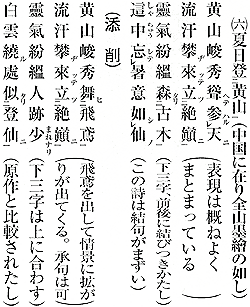 ㈥夏日登黄山(中国に在り全山墨繪の如し)
黄山峻秀聳参天(表現は概ねよく
流汗攀來立絶巓まとまっている)
靈氣紛縕森古木(下三字前後に結びつきがたし)
這中忘暑意如仙(この詩は結句がまずい)
(添削)
黄山峻秀舞飛鳶(飛鳶を出して情景に拡が
流汗攀來立絶巓りが出てくる。承句は可)
靈氣紛縕人跡少(下三字は上に合わす)
白雲繞處似登仙(原作と比較されたし)